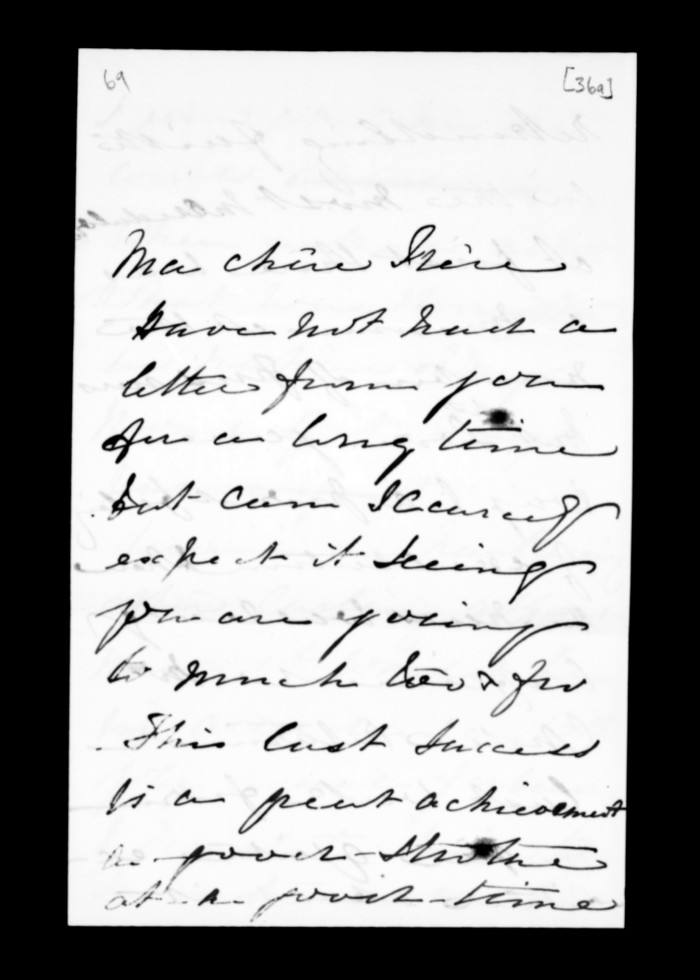 69
[36a]
Ma chère Frère
Have not had a
letter from you
for a long time
but can scarcely
expect it seeing
you are going
to much too & fro
This last success
Is a great achievement
a good stroke
at a good time